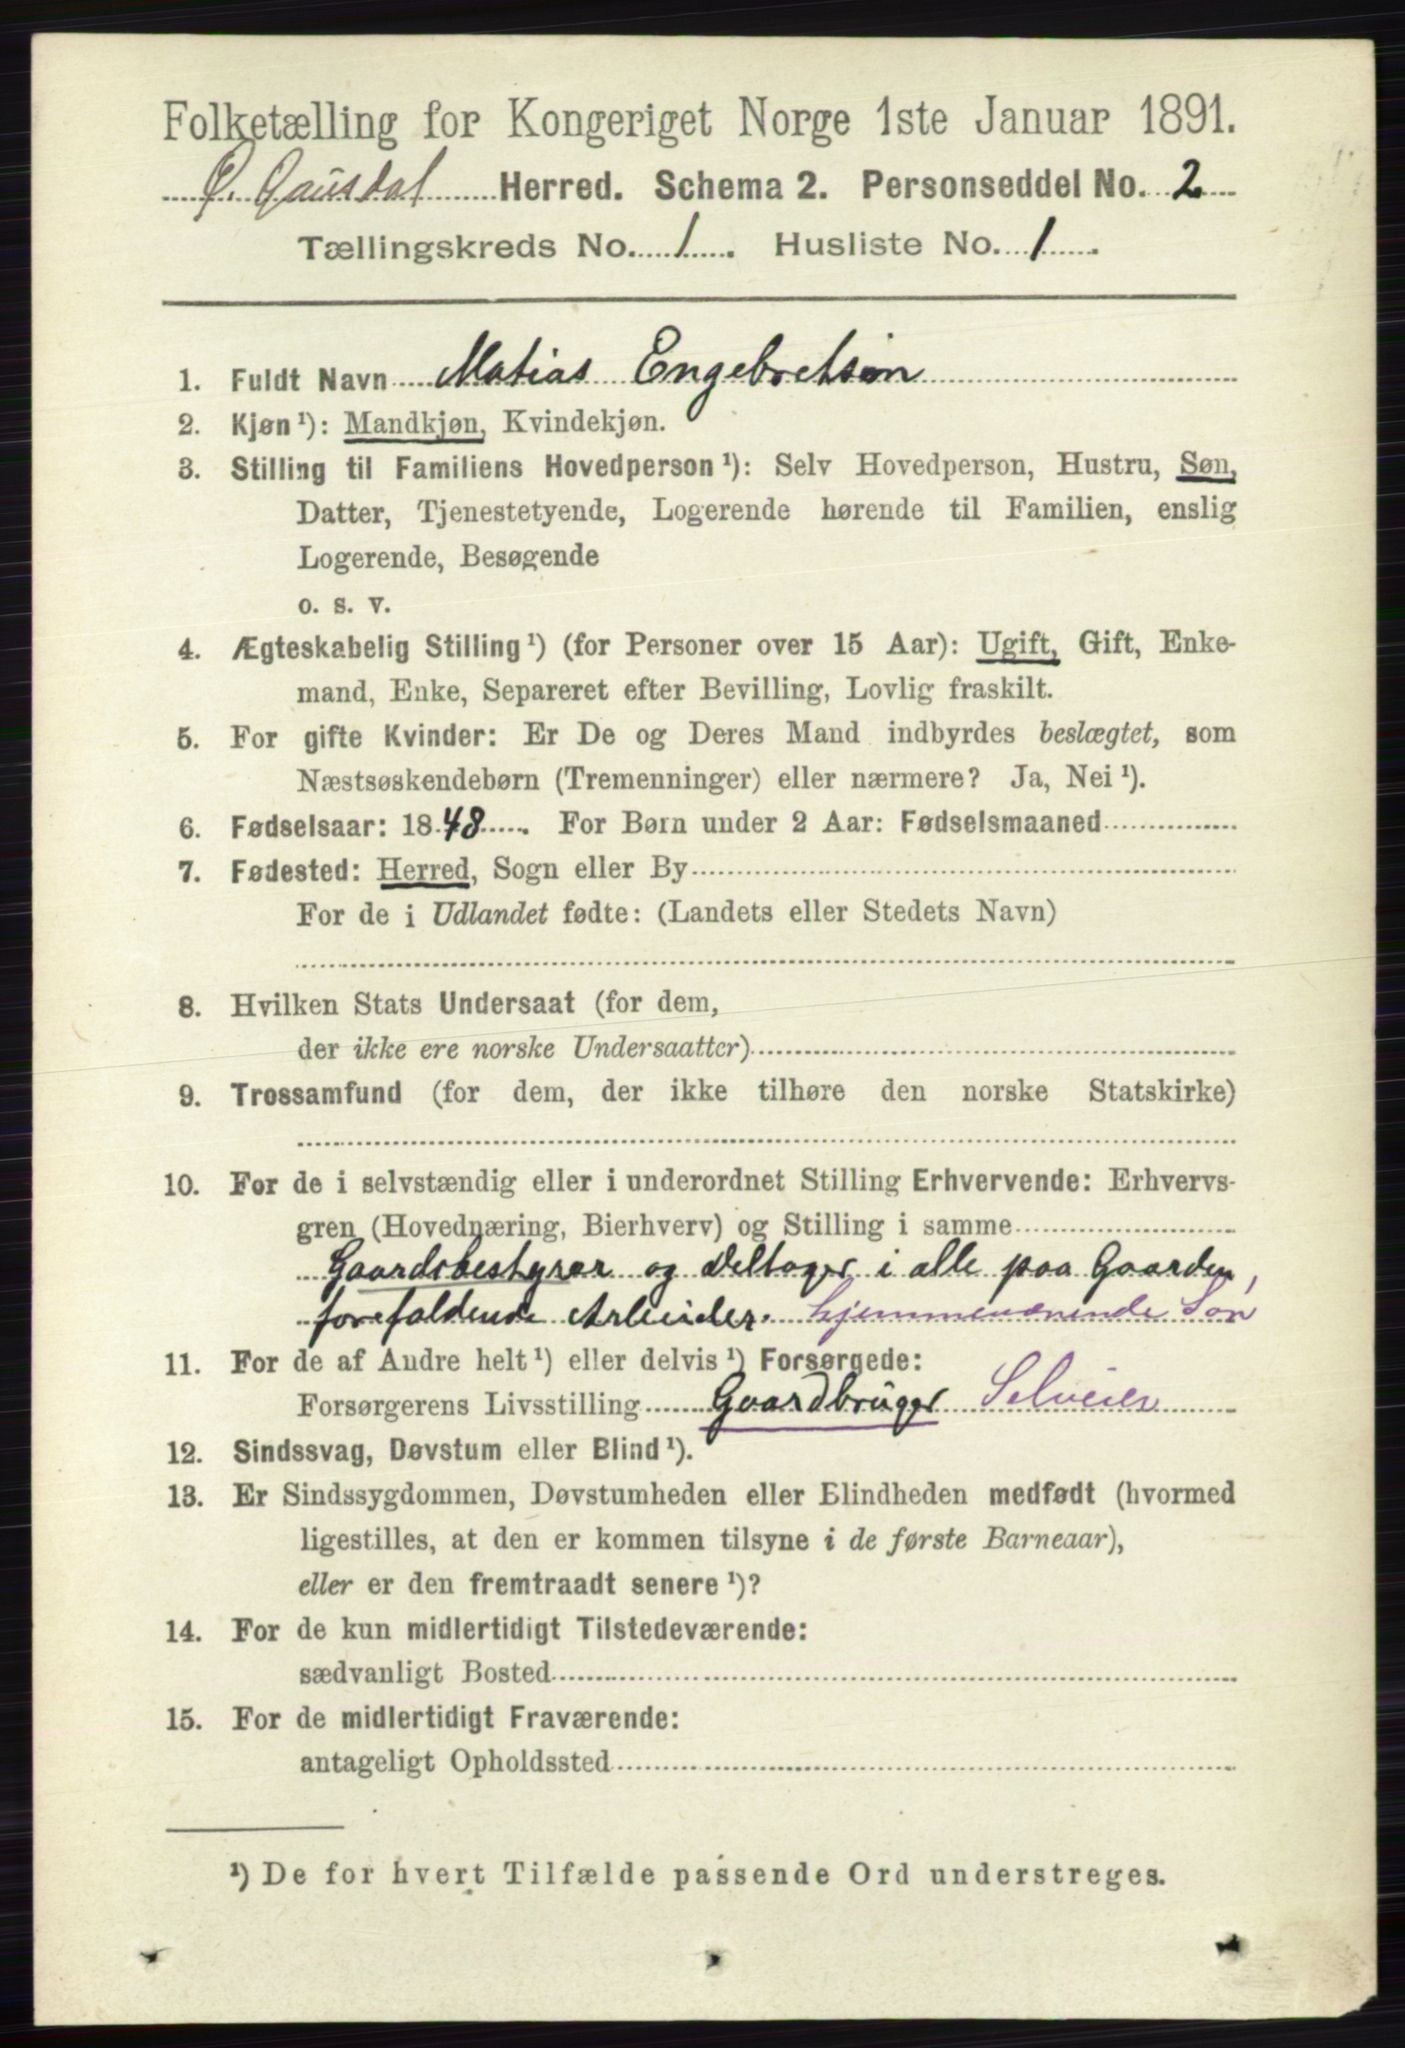 Folketælling for Kongeriget Norge 1ste Januar 1891.
Ø. Gausdal Herred. Schema 2. Personseddel No. 2
Tællingskreds No. 1. Husliste No. 1.
1. Fuldt Navn Matias Engebretsøn
2. Kjøn¹): Mandkjøn, Kvindekjøn.
3. Stilling til Familiens Hovedperson¹): Selv Hovedperson, Hustru, Søn,
Datter, Tjenestetyende, Logerende hørende til Familien, enslig
Logerende, Besøgende
o. s. v.
4. Ægteskabelig Stilling¹) (for Personer over 15 Aar): Ugift, Gift, Enke-
mand, Enke, Separeret efter Bevilling, Lovlig fraskilt.
5. For gifte Kvinder: Er De og Deres Mand indbyrdes beslægtet, som
Næstsøskendebørn (Tremenninger) eller nærmere? Ja, Nei¹).
6. Fødselsaar: 1848. For Børn under 2 Aar: Fødselsmaaned
7. Fødested: Herred, Sogn eller By
For de i Udlandet fødte: (Landets eller Stedets Navn)
8. Hvilken Stats Undersaat (for dem,
der ikke ere norske Undersaatter)
9. Trossamfund (for dem, der ikke tilhøre den norske Statskirke)
10. For de i selvstændig eller i underordnet Stilling Erhvervende: Erhvervs-
gren (Hovednæring, Bierhverv) og Stilling i samme
Gaardsbestyrer og deltager i alle paa Gaarden,
forefaldende Arbeider. hjemmeværende Søn
11. For de af Andre helt¹) eller delvis¹) Forsørgede:
Forsørgerens Livsstilling Gaardbruger Selveier
12. Sindssvag, Døvstum eller Blind¹).
13. Er Sindssygdommen, Døvstumheden eller Blindheden medfødt (hvormed
ligestilles, at den er kommen tilsyne i de første Barneaar),
eller er den fremtraadt senere¹)?
14. For de kun midlertidigt Tilstedeværende:
sædvanligt Bosted
15. For de midlertidigt Fraværende:
antageligt Opholdssted
¹) De for hvert Tilfælde passende Ord understreges.